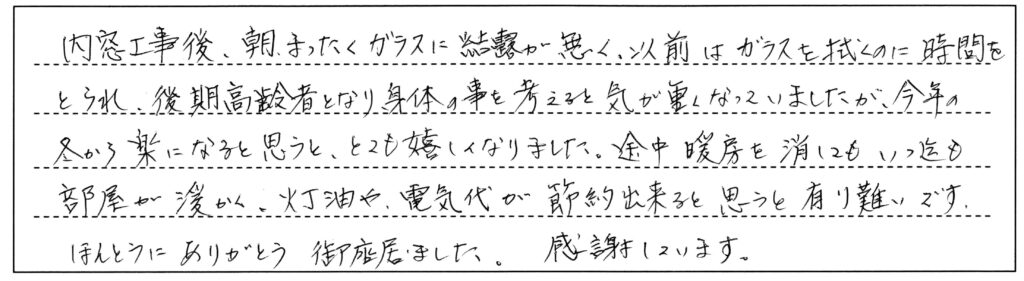 内窓工事後、朝まったくガラスに結露が無く、以前はガラスを拭くのに時間を
とられ、後期高齢者となり身体の事を考えると気が重くなっていましたが、今年の
冬から楽になると思うと、とても嬉しくなりました。途中暖房を消しても いつ迄も
部屋が暖かく、灯油や、電気代が節約出来ると思うと有り難いです。
ほんとうにありがとう御座居ました。 感謝しています。